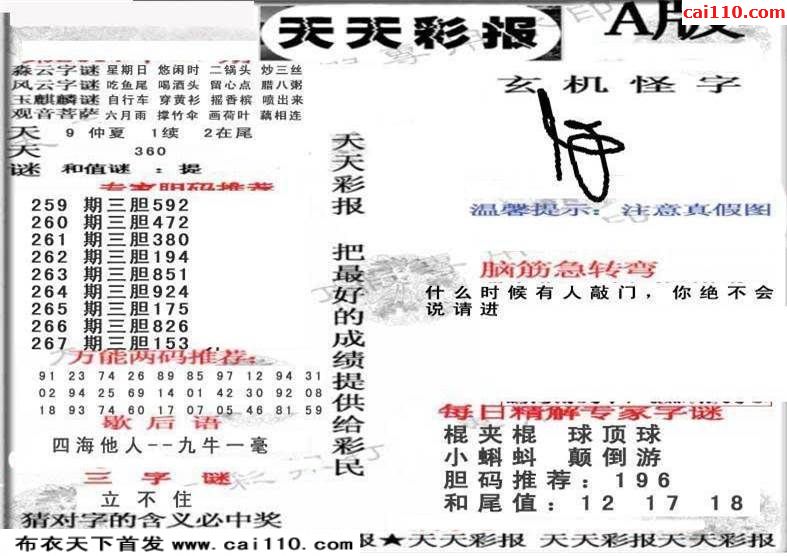 cai110.com
天天彩报
A版
森云字谜 星期日 悠闲时 二锅头 炒三丝
风云字谜 吃鱼尾 喝酒头 留心点 腊八粥
玉麒麟谜 自行车 穿黄衫 摇香槟 喷出来
观音菩萨 六月雨 撑竹伞 画荷叶 藕相连
天 9 仲夏 1续 2在尾
天 360
谜 和值谜 :提
专家胆码推荐
259 期三胆592
260 期三胆472
261 期三胆380
262 期三胆194
263 期三胆851
264 期三胆924
265 期三胆175
266 期三胆826
267 期三胆153
万能两码推荐:
91 23 74 26 89 85 97 12 94 31
02 94 25 69 14 01 42 30 92 08
18 93 74 60 17 07 05 46 81 59
歇后语
四海他人--九牛一毫
三字谜
立不住
猜对字的含义必中奖
布衣天下首发 www.cai110.com
天天彩报 把最好的成绩提供给彩民
玄机怪字
温馨提示: 注意真假图
脑筋急转弯
什么时候有人敲门,你绝不会
说请进
每日精解专家字谜
棍夹棍 球顶球
小蝌蚪 颠倒游
胆码推荐:196
和尾值:12 17 18
报★天天彩报 天天彩报天天彩报